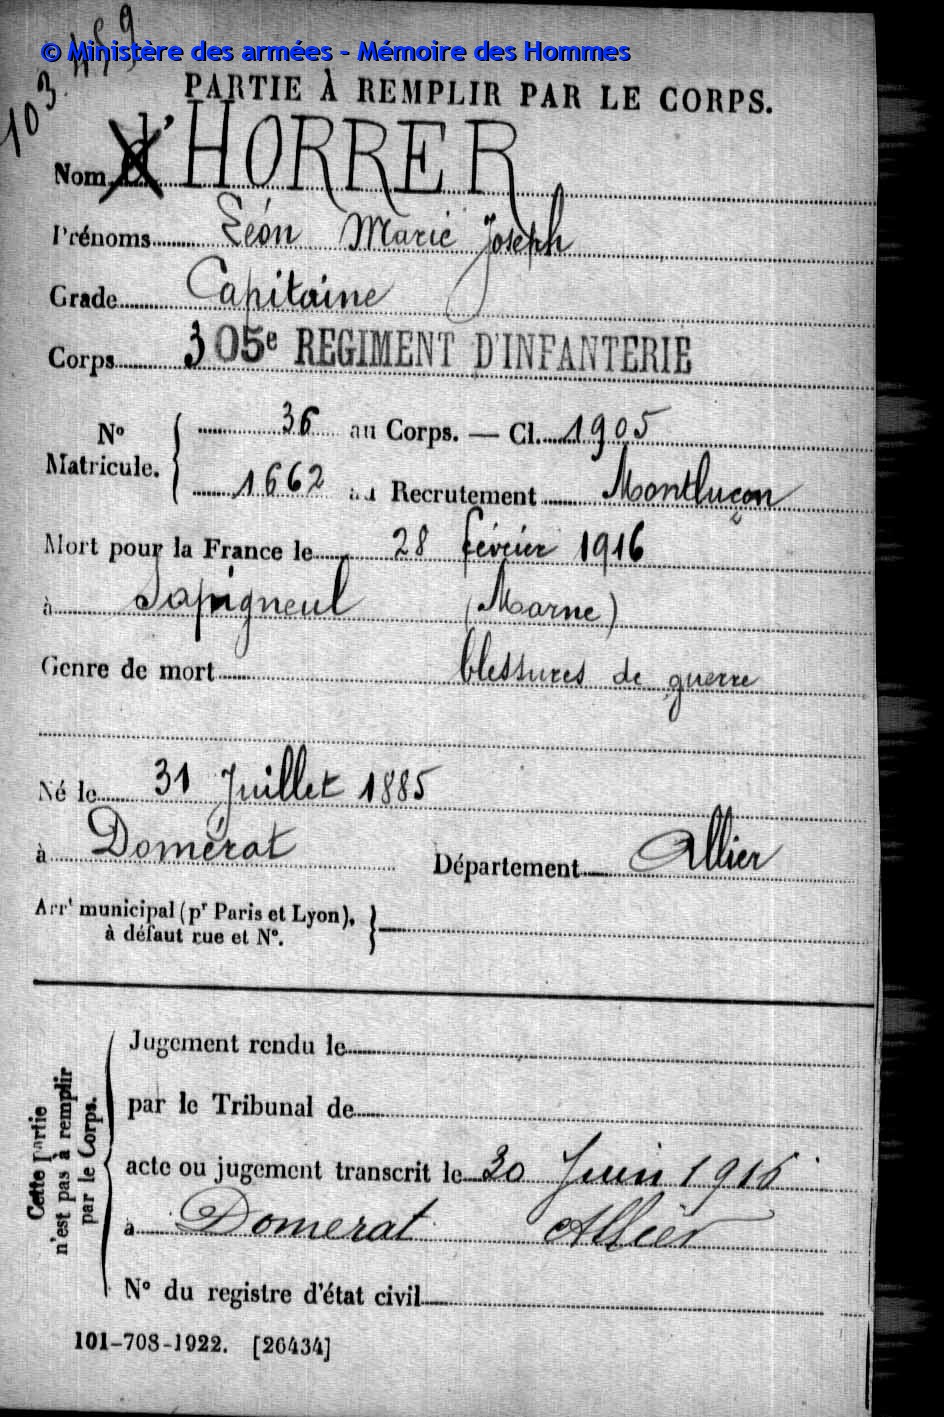 © Ministère des armées - Mémoire des Hommes
103.459
PARTIE À REMPLIR PAR LE CORPS.
Nom d'HORRER
Prénoms Léon Marie Joseph
Grade Capitaine
Corps 305e REGIMENT D'INFANTERIE
No Matricule. { 36 au Corps. — Cl. 1905
1662 au Recrutement Montluçon
Mort pour la France le 28 février 1916
à Sapigneul (Marne)
Genre de mort blessures de guerre
Né le 31 Juillet 1885
à Domérat Département Allier
Arrt municipal (pr Paris et Lyon), à défaut rue et No. }
Cette partie n'est pas à remplir par le Corps. {
Jugement rendu le
par le Tribunal de
acte ou jugement transcrit le 30 Juin 1916
à Domerat Allier
No du registre d'état civil
101-708-1922. [26434]